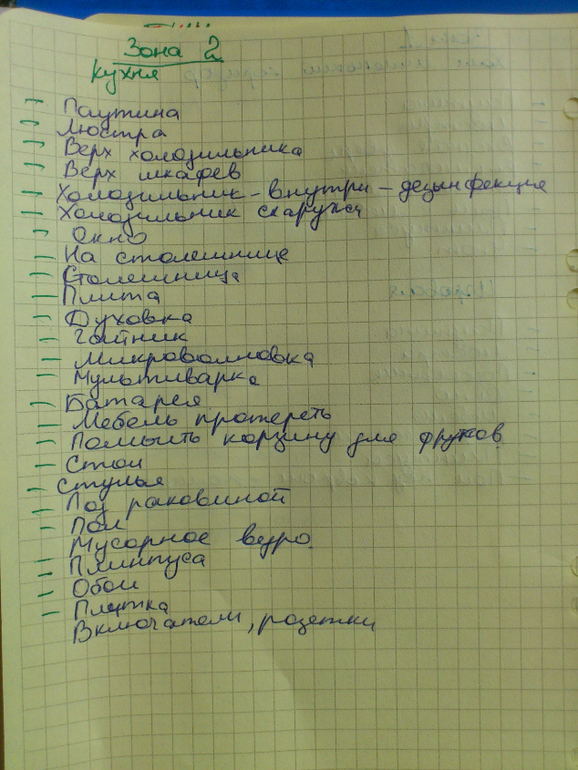 Зона 2
кухня
- Паутина
- Люстра
- Верх холодильника
- Верх шкафов
- Холодильник - внутри - дезинфекция
- Холодильник снаружи
- Окно
- На столешнице
- Столешница
- Плита
- Духовка
- Чайник
- Микроволновка
- Мультиварка
- Батарея
- Мебель протереть
- Помыть корзину для фруктов
- Стол
- Стулья
- Под раковиной
- Пол
- Мусорное ведро
- Плинтуса
- Обои
- Плитка
Включатели, розетки